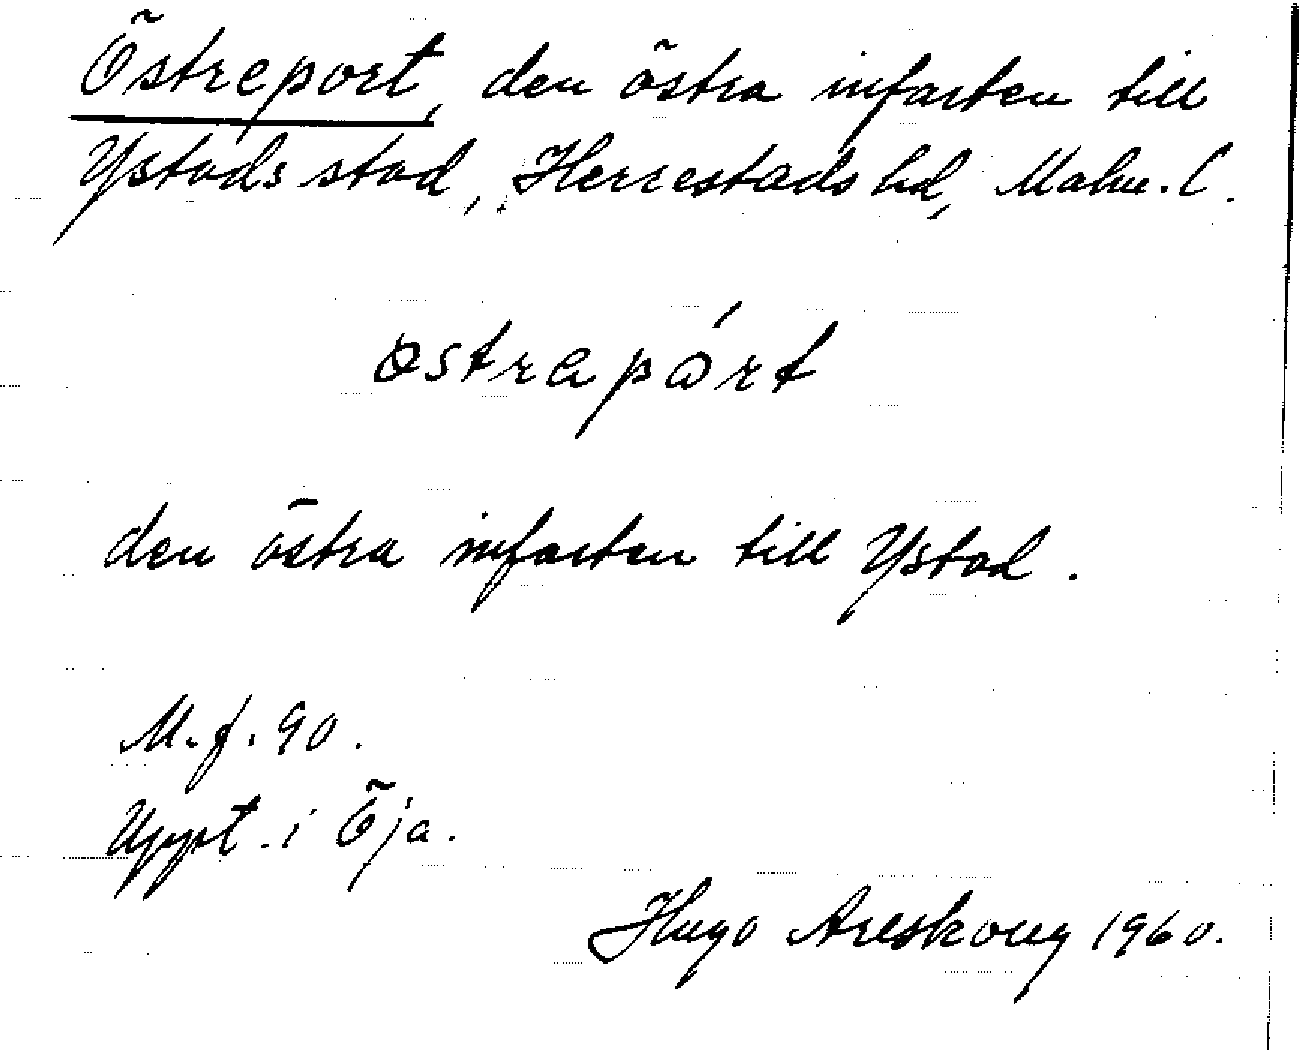 Östreport, den östra infarten till
Ystads stad, Herrestads hd, Malm. l.
östrapårt
den östra infarten till Ystad.
M. f. 90.
Uppt. i Öja.
Hugo Areskoug 1960.